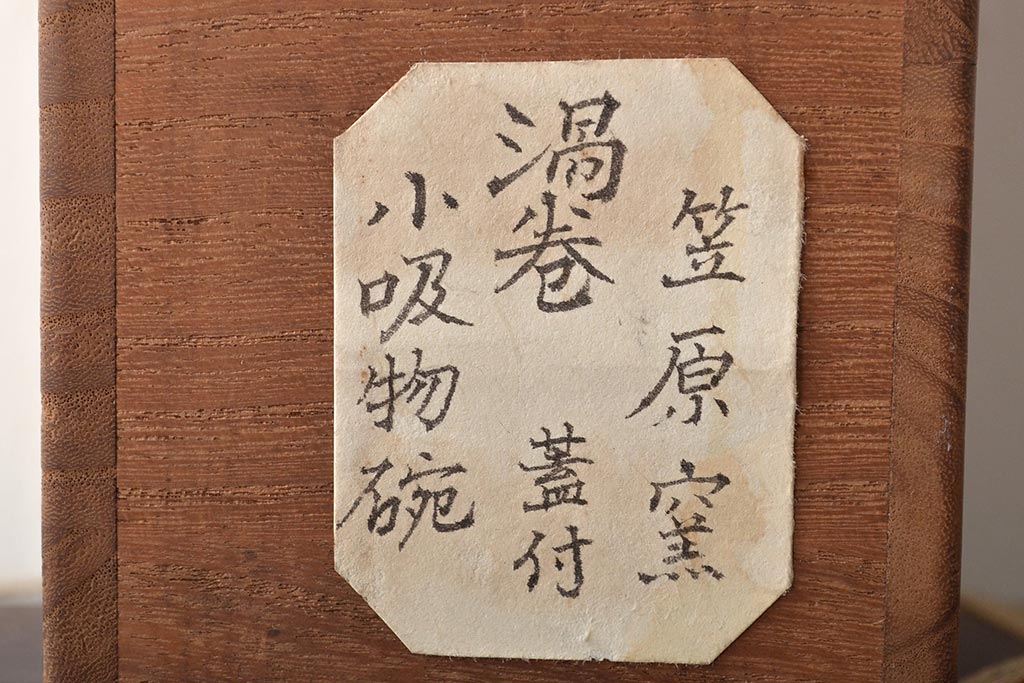 笠原窯
渦巻 蓋付
小吸物碗